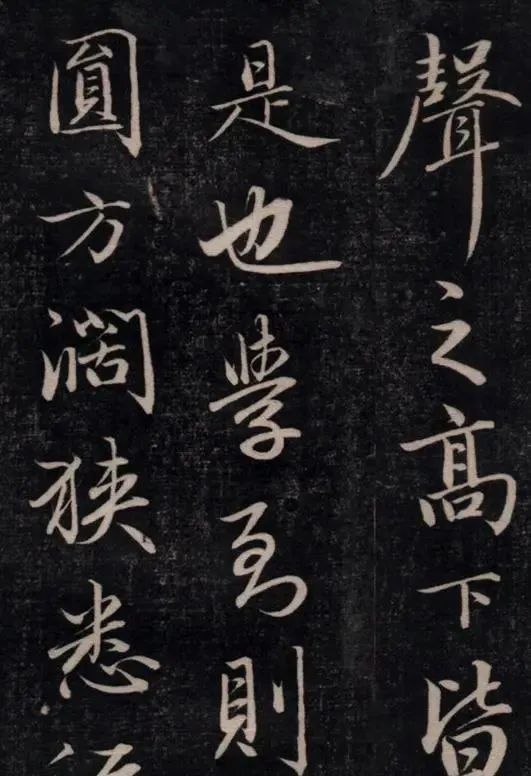 聲之高下皆
是也學到則
圓方濶狹悉